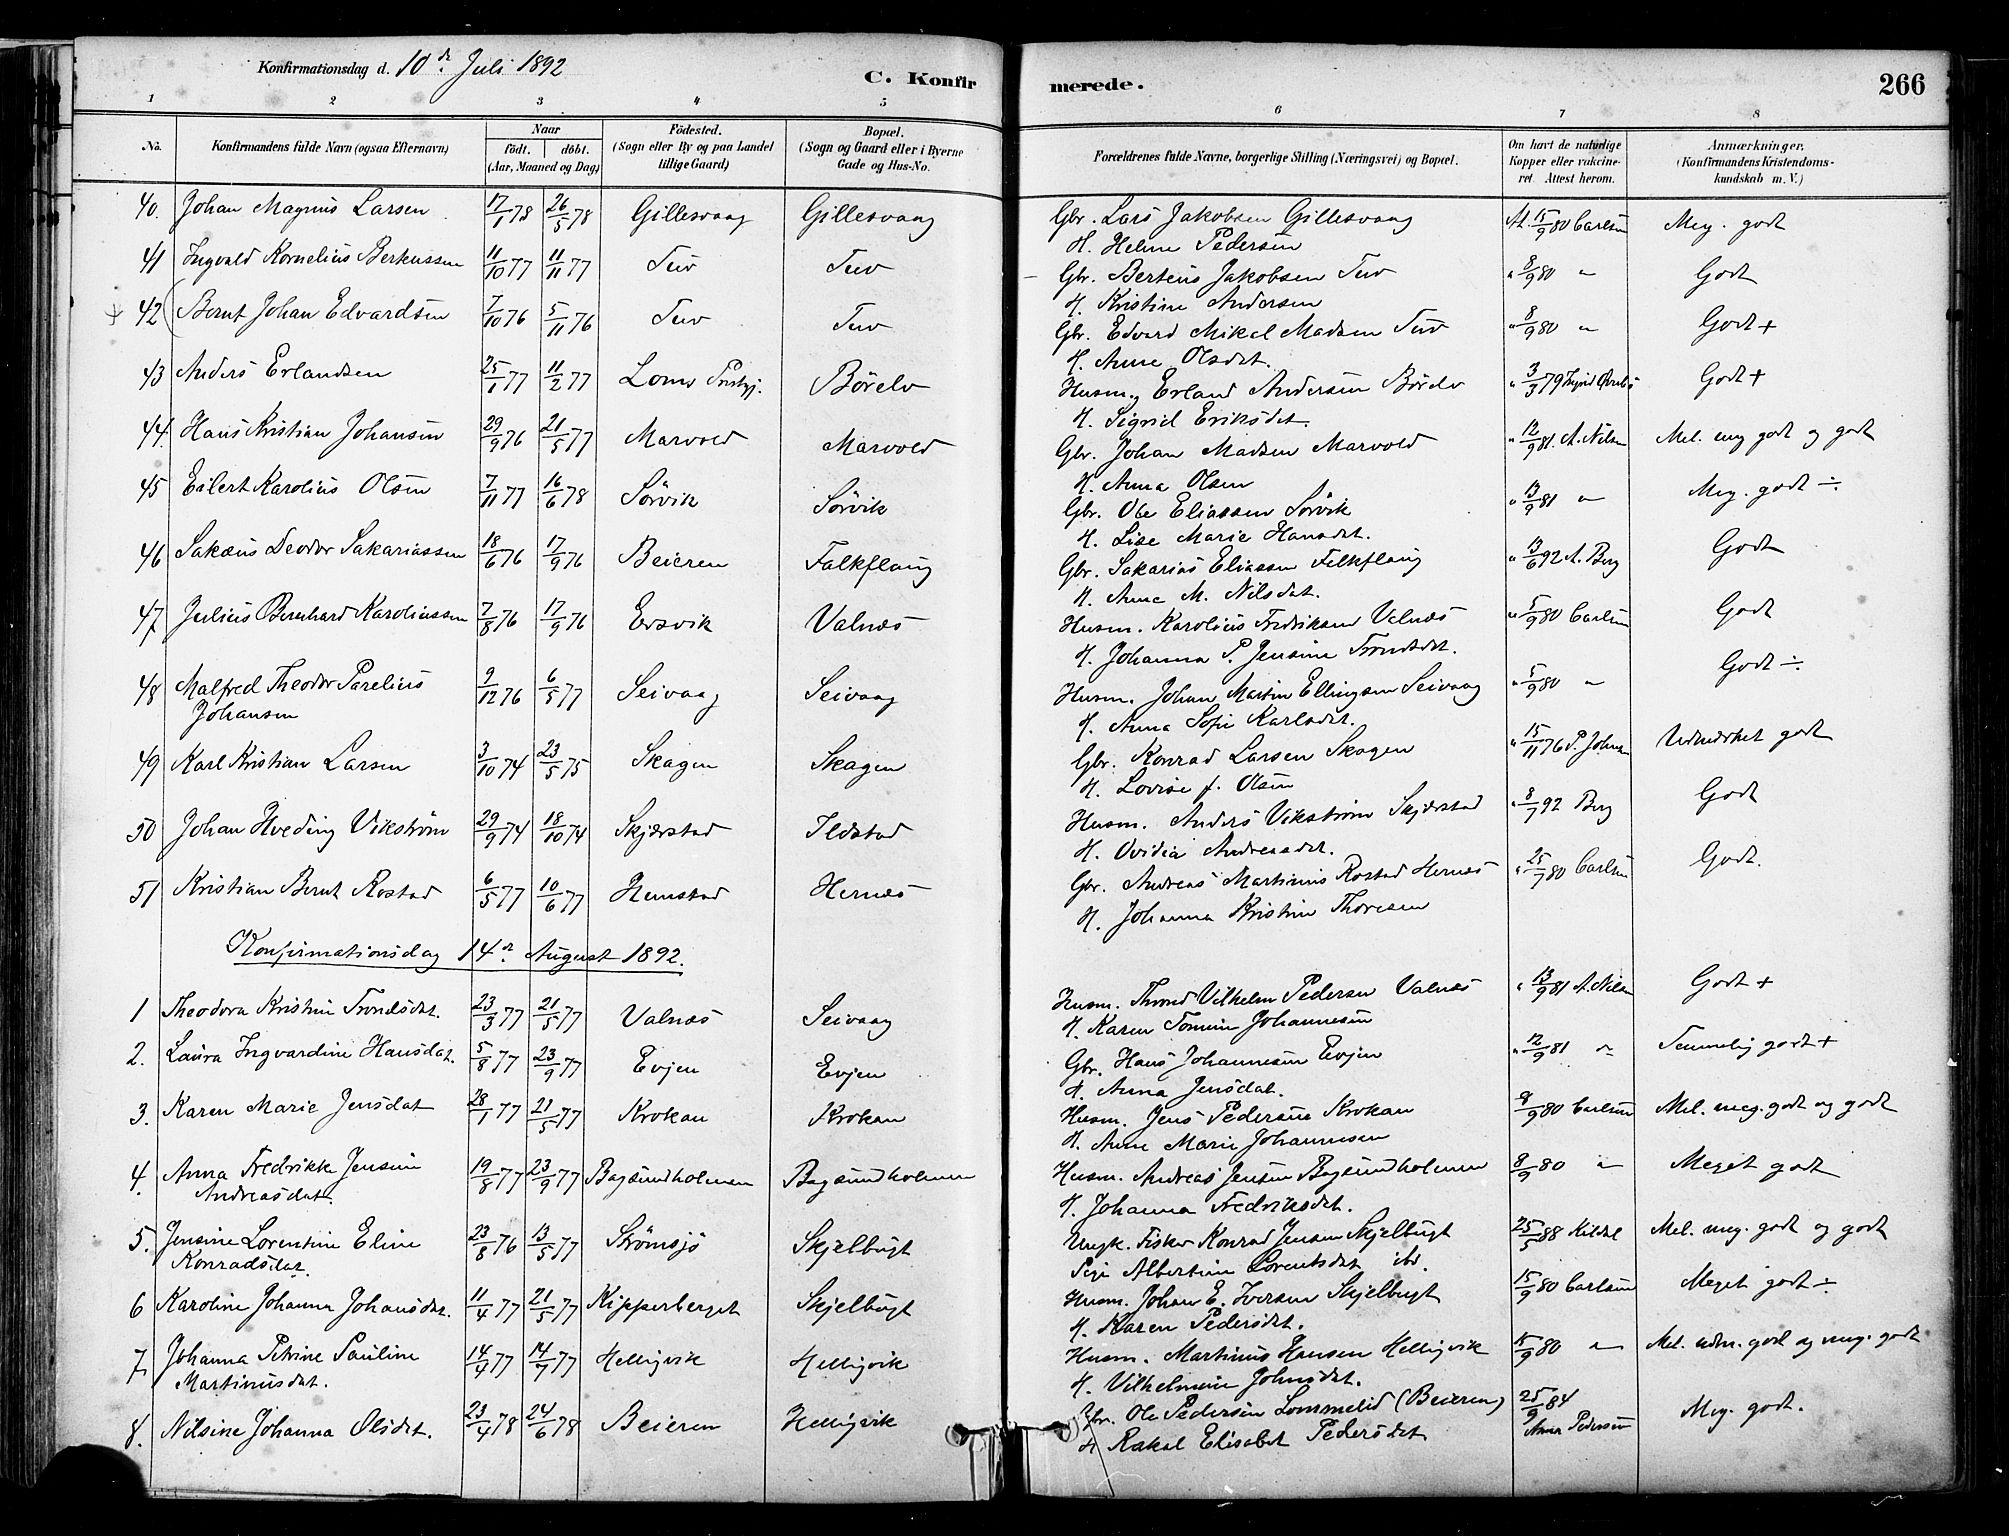 Konfirmationsdag d. 10de Juli 1892
C. Konfirmerede.
266
1 2 3 4 5 6 7 8
No. Konfirmandens fulde Navn (ogsaa Efternavn) Naar födt. döbt. (Aar, Maaned og Dag) Födested. (Sogn eller By og paa Landet tillige Gaard) Bopæl. (Sogn og Gaard eller i Byerne Gade og Hus-No. Forældrenes fulde Navne, borgerlige Stilling (Næringsvei) og Bopæl. Om havt de naturlige Kopper eller vakcineret. Attest herom. Anmærkninger. (Konfirmandens Kristendomskundskab m. V.)
40. Johan Magnus Larsen 17/1 78 26/5 78 Gillesvaag Gillesvaag Gbr. Lars Jakobsen Gillesvaag At. 15/9 80 Carlsen Meg. godt
H. Helene Pedersen
41 Ingvald Kornelius Berteussen 11/10 77 11/11 77 Tuv Tuv Gbr. Berteus Jakobsen Tuv " 8/9 80 " Godt
H. Kristine Andersen
42 Bernt Johan Edvardsen 7/10 76 5/11 76 Tuv Tuv Gbr. Edvard Mikal Madsen Tuv " 8/9 80 " Godt +
H. Anne Olsdet.
43 Anders Erlandsen 25/1 77 11/2 77 Loms Prstgj. Börelv Husm. Erland Andersen Börelv " 3/3 79 Godt +
H. Sigrid Eriksdet.
44. Hans Kristian Johansen 29/9 76 21/5 77 Marvold Marvold Gbr. Johan Madsen Marvold " 12/9 81 A. Nilsen Mel. meg godt og godt
H. Anna Olsen
45 Eilert Karolius Olsen 7/11 77 16/6 78 Sörvik Sörvik Gbr. Ole Eliassen Sörvik " 13/9 81 " Meg. godt ÷
H. Lise Marie Hansdet.
46 Sakæus Teodor Sakariassen 18/6 76 17/9 76 Beieren Falkflaug Gbr. Sakarias Eliassen Felkflaug " 13/6 92 A. Berg Godt
H. Anne M. Nilsdet.
47 Julius Bernhard Karoliussen 7/8 76 17/9 76 Ersvik Valnæs Husm. Karolius Fredriksen Valnæs " 5/9 80 Carlsen Godt
H. Johanna P. Jensine Trondsdet.
48 Malfred Theodor Parelius 9/12 76 6/5 77 Seivaag Seivaag Husm. Johan Martin Ellingsen Seivaag " 5/9 80 " Godt ÷
Johansen H. Anna Sofie Karlsdet.
49 Karl Kristian Larsen 3/10 74 23/5 75 Skagen Skagen Gbr. Konrad Larsen Skagen " 15/11 76 P. Johnsen Udmærket godt
H. Lovise f. Olsen
50 Johan Hveding Vikström 29/9 74 18/10 74 Skjærstad Ildstad Husm. Anders Vikström Skjærstad " 8/7 92 Berg Godt
H. Ovidia Andreasdet.
51 Kristian Bernt Rostad 6/5 77 10/6 77 Hemstad Hernæs Gbr. Andreas Martinius Rostad Hernæs " 25/7 80 Carlsen Godt.
H. Johanna Kristine Thoresen
Konfirmationsdag 14de August 1892.
1 Theodora Kristine Trondsdet. 23/3 77 21/5 77 Valnæs Seivaag Husm. Thrond Vilhelm Pedersen Valnæs " 13/9 81 A. Nilsen Godt +
H. Karen Tomine Johannesen
2. Laura Ingvardine Hansdat. 5/8 77 23/9 77 Evjen Evjen Gbr. Hans Johannesen Evjen " 12/9 81 " Temmelig godt +
H. Anna Jensdat.
3. Karen Marie Jensdat 28/1 77 21/5 77 Krokan Krokan Husm. Jens Pedersen Krokan 8/9 80 Carlsen Mel. meg. godt og godt
H. Anne Marie Johannesen
4. Anna Fredrikke Jensine 19/8 77 23/9 77 Bagsundholmen Bagsundholmen Husm. Andreas Jensen Bagsundholmen 8/9 80 " Meget godt
Andreasdat. H. Johanna Fredriksdet.
5. Jensine Lorentine Eline 23/8 76 13/5 77 Strömsjö Skjelbugt Ungk. Fisker Konrad Jensen Skjelbugt 25/5 88 Kildal Mel. meg. godt og godt
Konradsdat. Pige Albertine Lorentsdet ibd.
6 Karoline Johanna Johansdet. 11/4 77 21/5 77 Kipperberget Skjelbugt Husm. Johan E. Iversen Skjelbugt 15/9 80 Carlsen Meget godt ÷
H. Karen Pedersdet.
7 Johanna Petrine Pauline 14/4 77 14/7 77 Helligvik Helligvik Husm. Martinus Hansen Helligvik 15/9 80 " Mel. udm. godt og meg. godt
Martinusdat. H. Vilhelmine Johnsdet.
8. Nilsine Johanna Olsdet. 23/4 78 24/6 78 Beieren Helligvik Gbr. Ole Pedersen Lommelid (Beieren) 25/9 84 Meg. godt.
H Rakel Elisabet Pedersdet Anna Pedersen